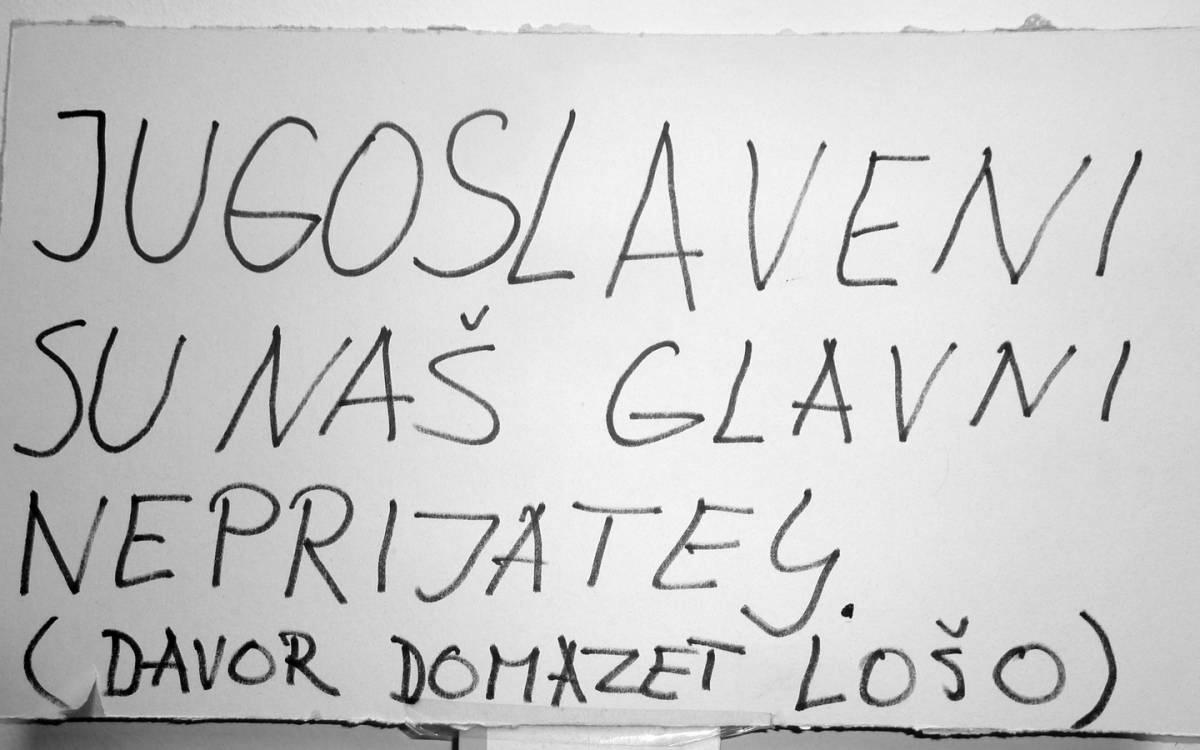 JUGOSLAVENI
SU NAŠ GLAVNI
NEPRIJATELJ.
(DAVOR DOMAZET LOŠO)